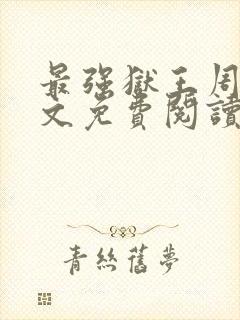 最强獄王周
文免費閱讀
青絲舊夢